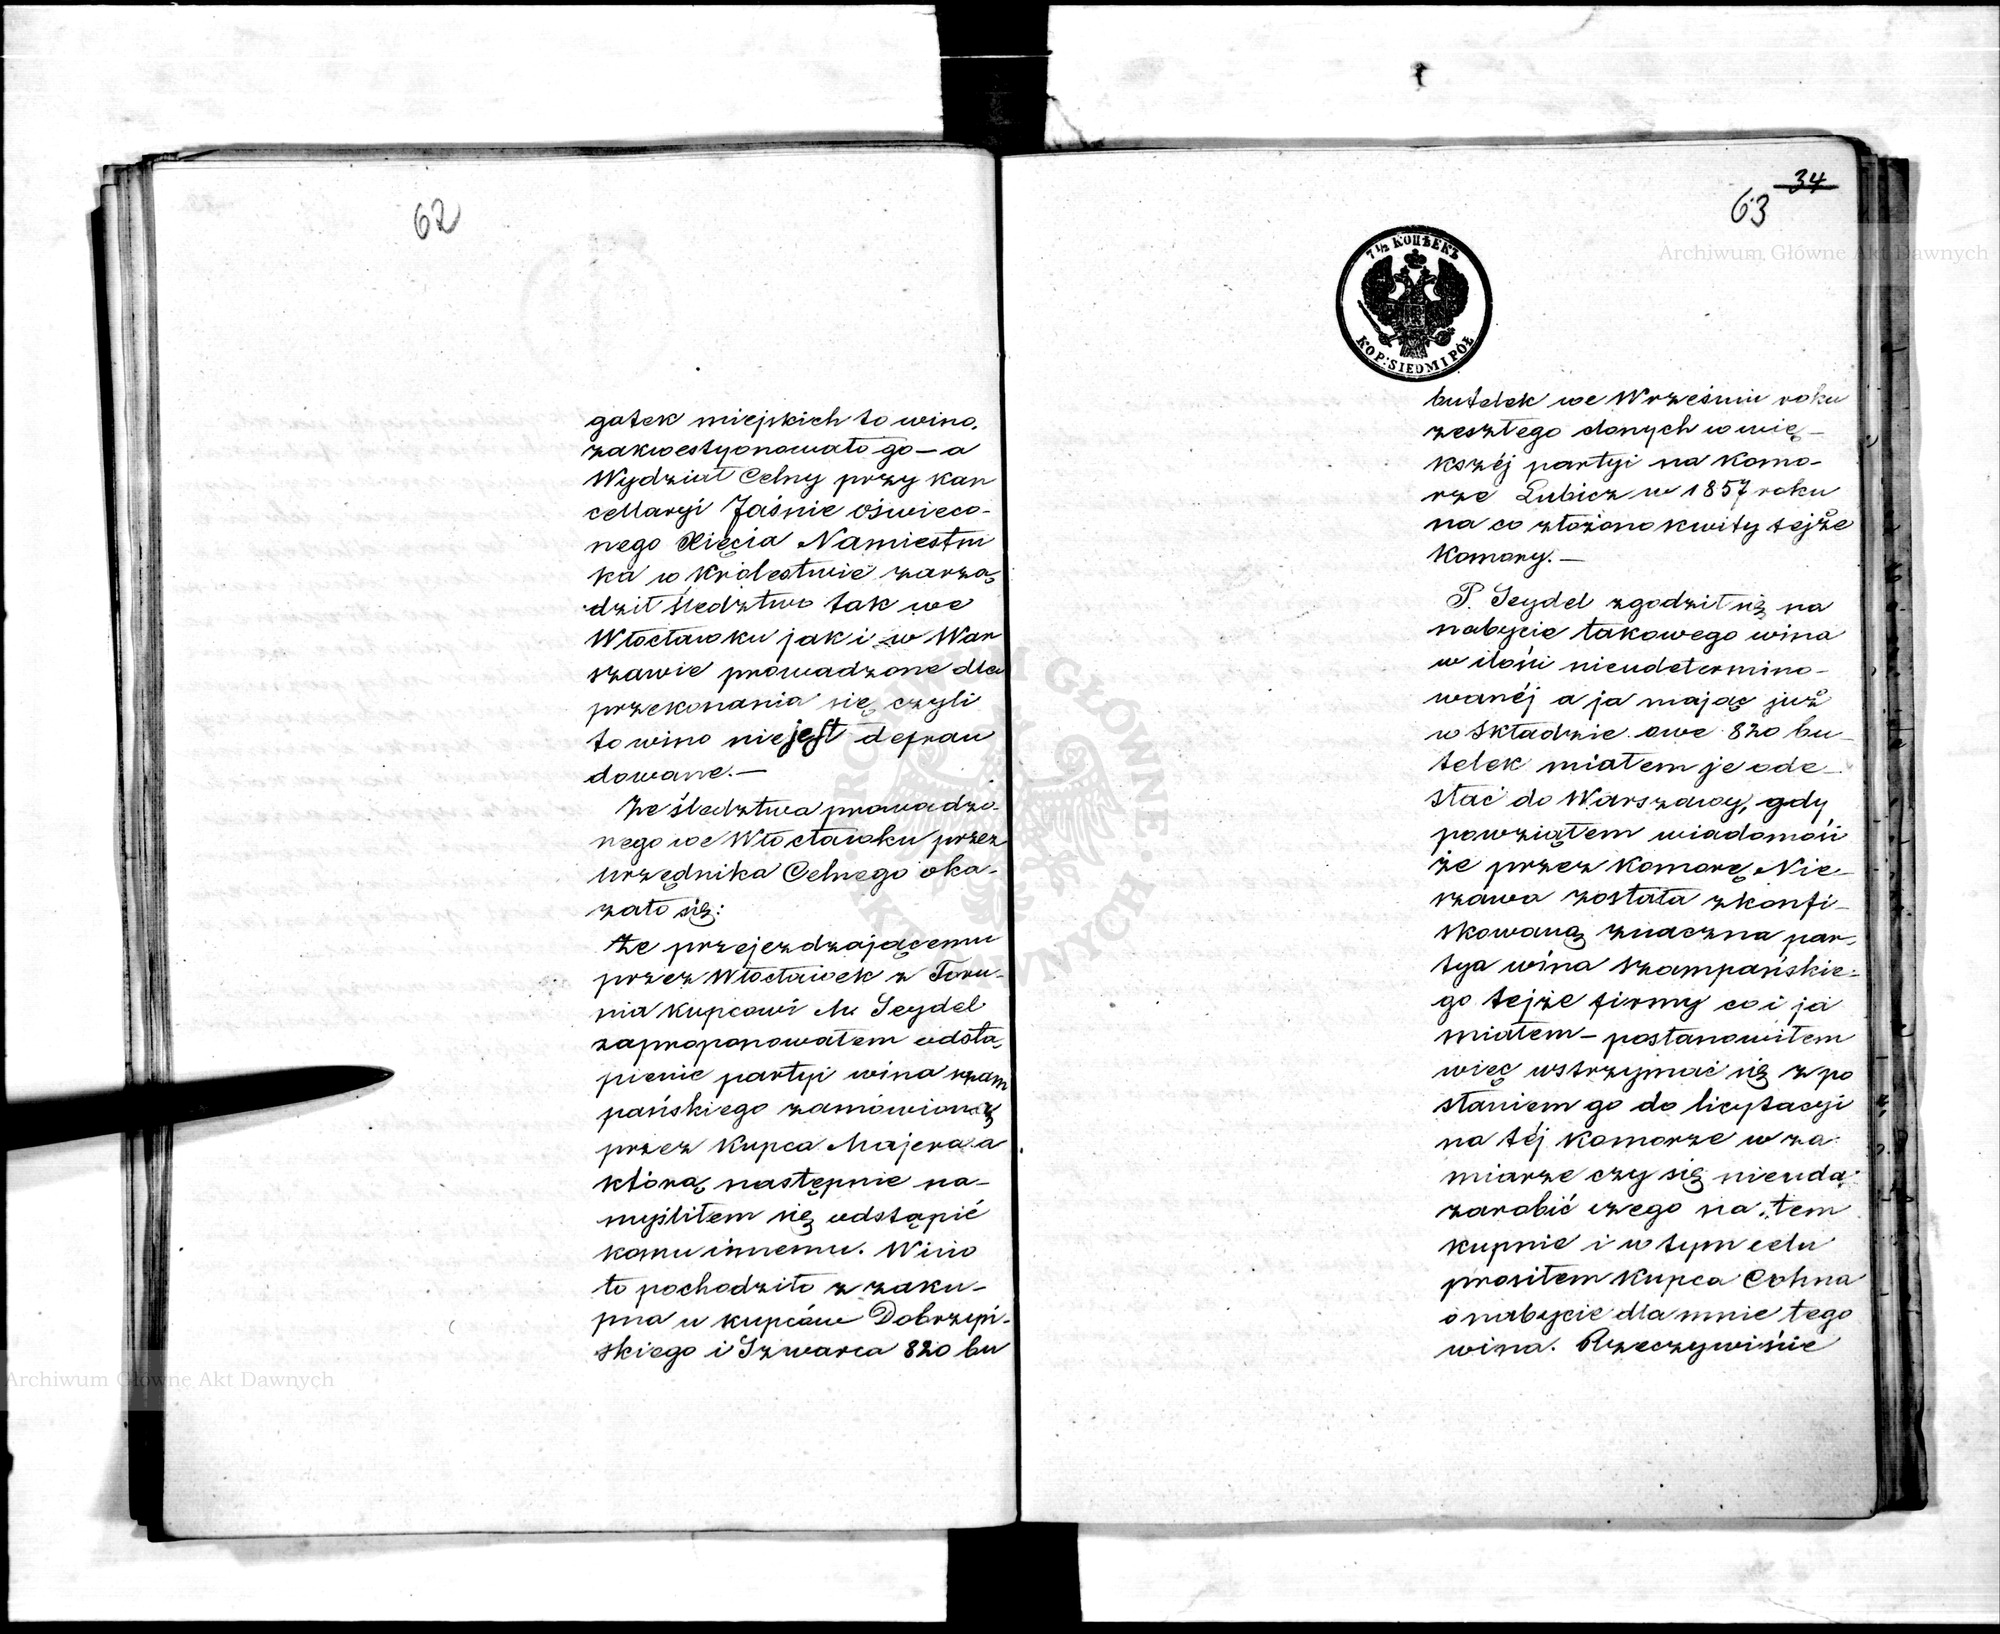 62
gatek miejskich to wino,
zakwestyonowało go — a
Wydział Celny przy kan
cellaryi Jaśnie oświeco-
nego Xięcia Namiestni
ka w Królestwie zarzą
dził śledztwo tak we
Włocławku jak i w War
szawie prowadzone dla
przekonania się czyli
to wino nie jest defrau
dowane. —
Ze śledztwa prowadzo-
nego we Włocławku przez
urzędnika Celnego oka-
zało się:
że przejezdzającemu
przez Włocławek z Toru-
nia Kupcowi M. Seydel
zaproponowałem odstą-
pienie partyi wina szam
pańskiego zamówioną
przez Kupca Majera a
którą następnie na-
myśliłem się odstąpić
komu innemu. Wino
to pochodziło z zaku-
pna u kupców Dobrzyń-
skiego i Szwarca 820 bu
34
63
7 1/2 КОПѢЕКЪ
KOP: SIEDM I PÓŁ
butelek we Wrześniu roku
zeszłego danych w wię-
kszéj partyi na Komo-
rze Lubicz w 1857 roku
na co złożono kwity tejże
Komory. —
P. Seydel zgodził się na
nabycie takowego wina
w ilości nieudetermino-
wanéj a ja mając już
w Składzie owe 820 bu-
telek miałem je ode-
słać do Warszawy, gdy
powziąłem wiadomość
że przez Komorę Nie-
szawa została zkonfi-
skowaną znaczna par-
tya wina szampańskie-
go tejże firmy co i ja
miałem — postanowiłem
więc wstrzymać się z po
słaniem go do licytacyi
na téj Komorze w za-
miarze czy się nieuda
zarobić czego na tem
kupnie i w tym celu
prosiłem Kupca Cohna
o nabycie dla mnie tego
wina. Rzeczywiście
Archiwum Główne Akt Dawnych
Archiwum Główne Akt Dawnych